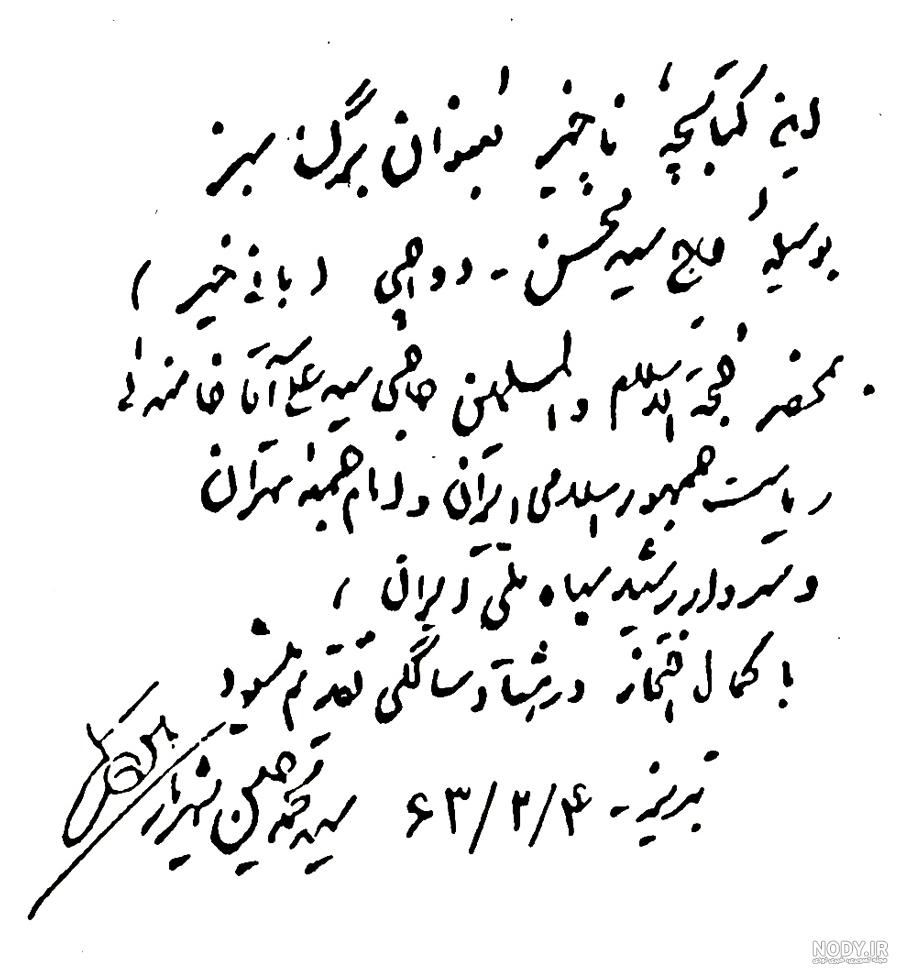 این کتابچهٔ ناچیز بعنوان برگ سبز
بوسیلهٔ حاج سید محسن - دواچی (بانی خیر)
بمحضر حجة الاسلام والمسلمین حاجی سید علی آقا خامنه‌ای
ریاست جمهور اسلامی ایران و امام جمعهٔ تهران
و سردار رشید سپاه ملی ایران ،
با کمال افتخار در هشتاد سالگی تقدیم میشود
تبریز - ۶۳/۳/۴ سید محمد حسین شهریار
NODY.IR